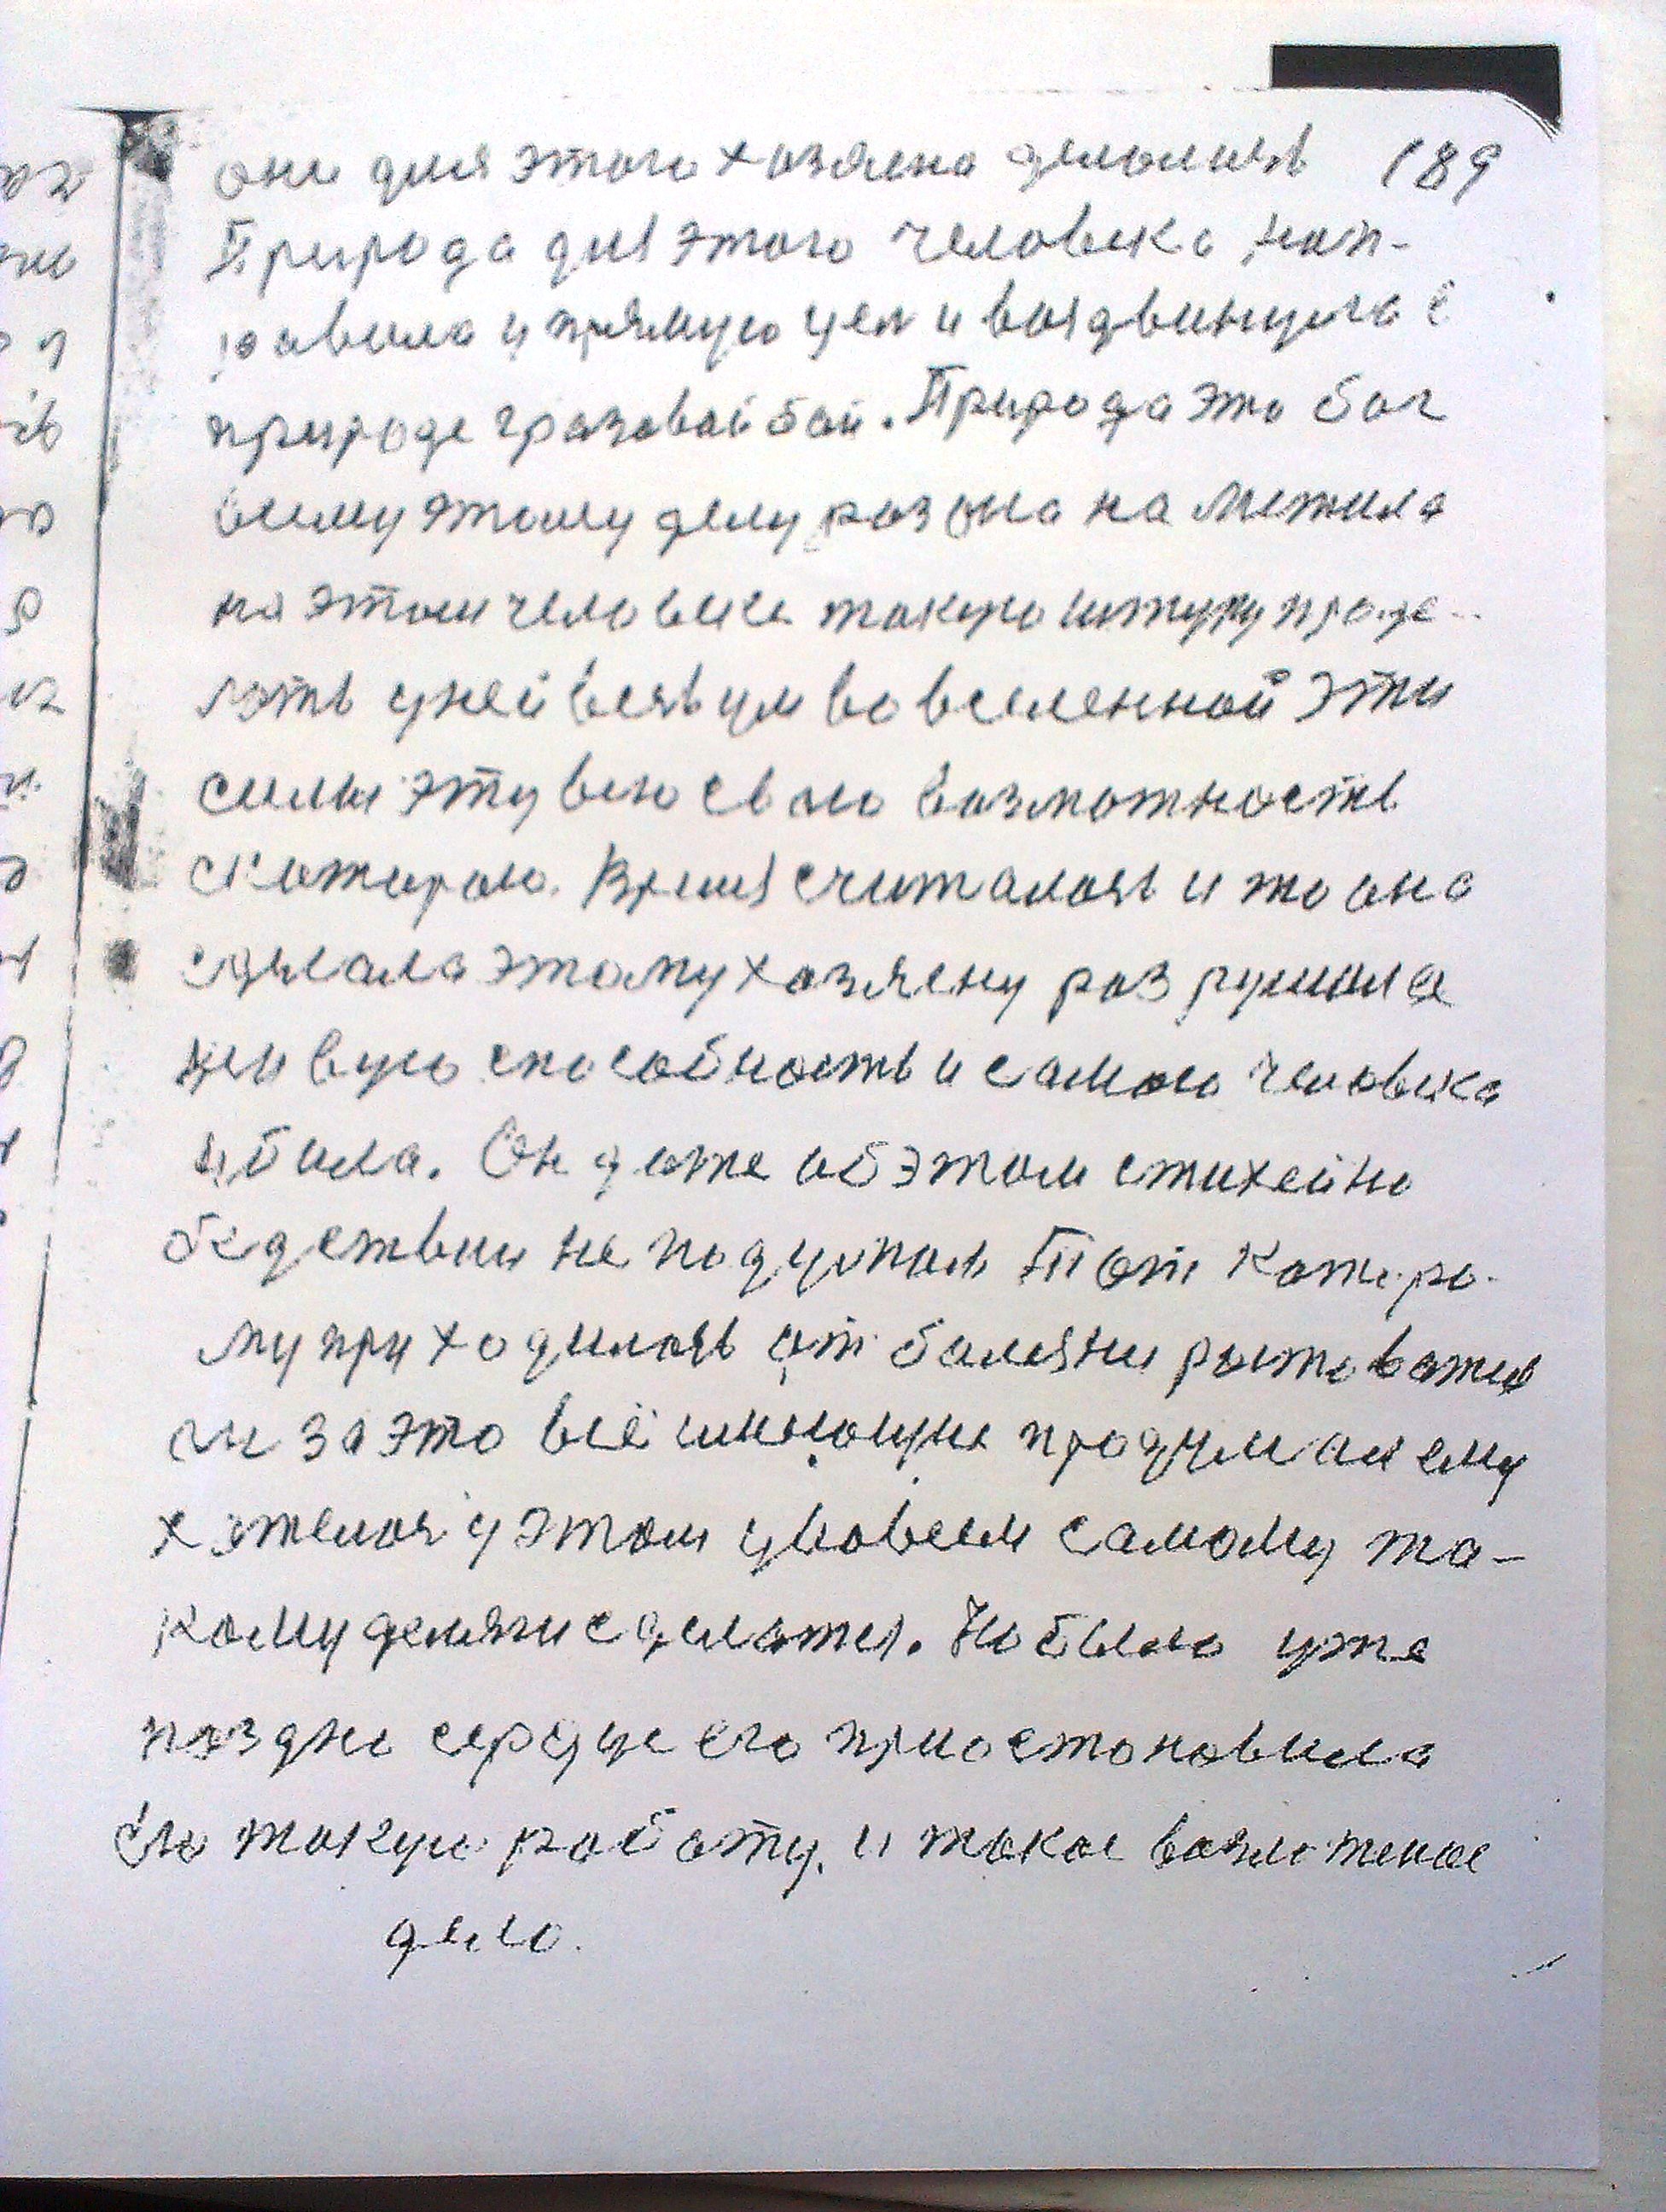 они для этого хозяена делались 189
Природа для этого человека нап-
равила и прямую цел и воздвинула в
природе гразовой бой. Природа это бог
всему этому делу раз она на межила
на этом человеке такую штуку проде-
лать у ней весь ум во вселенной эти
силы эту всю сваю возможность
скоторою. Время считалось и то она
сделала этому хозяену раз рушила
живую способность и самого человека
убила. Он даже об этом стихейно
бедствии не подумал Тот Которо-
му приходилось от балезни
за это всё продумал ему
хателося у этом усовсем самому та-
кому делязи сделатся. Но было уже
поздно сердце его приостоновила
его такую работу. и такое возможное
дело.